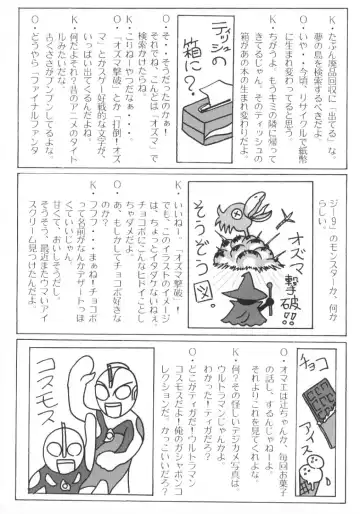 K・たぶん廃品回収に「出てる」な。
夢の島を検索するべきだよ。
O・いや、今頃、リサイクルで紙幣
に生まれ変わってると思う。
K・ちがうよ。もうキミの隣に帰って
きてるじゃん。そのティッシュの
箱があの本の生まれ変わりだよ。
ティッシュの
箱に？
O・そ・・そうだったのかぁ！
それでね、こんどは「オズマ」で
検索かけたらね。
K・こりねーやつだなぁ・・・
O・「オズマ撃破」とか「打倒！オズ
マ」とかスゲー好戦的な文字が、
いっぱい出てくるんだよね。
K・何だよそれ？昔のアニメのタイト
ルみたいだな。
古くささがプンプンしてるよな。
O・どうやら「ファイナルファンタ
ジー9」のモンスターか、何か
らしい。
オズマ撃破！！
そうぞう図。
K・いいねー！「オズマ撃破」！
でも、このイラストのイメージ
は、ちょっといただけないねぇ。
チョコボにこんなヒドイことし
ちゃダメだよ。
O・あ、もしかしてチョコボ好きな
K・フフフ・・・まぁね！チョコボ
って名前がなんかデザートっぽ
くていいじゃん。
甘くて、おいしそうだし。
そうそう、最近またウマいアイ
スクリーム見つけたんだよ。
チョコ
アイス
O・オマエは辻ちゃんか、毎回お菓子
の話し、するんじゃねーよ。
それよりこれを見てくれよな。
K・何？その怪しいデジカメ写真は。
ウルトラマンじゃんかよ。
わかった！ティガだろ？
O・どこがティガだ！ウルトラマン
コスモスだよ！俺のガシャポンコ
レクションだ、かっこいいだろ？
コスモス